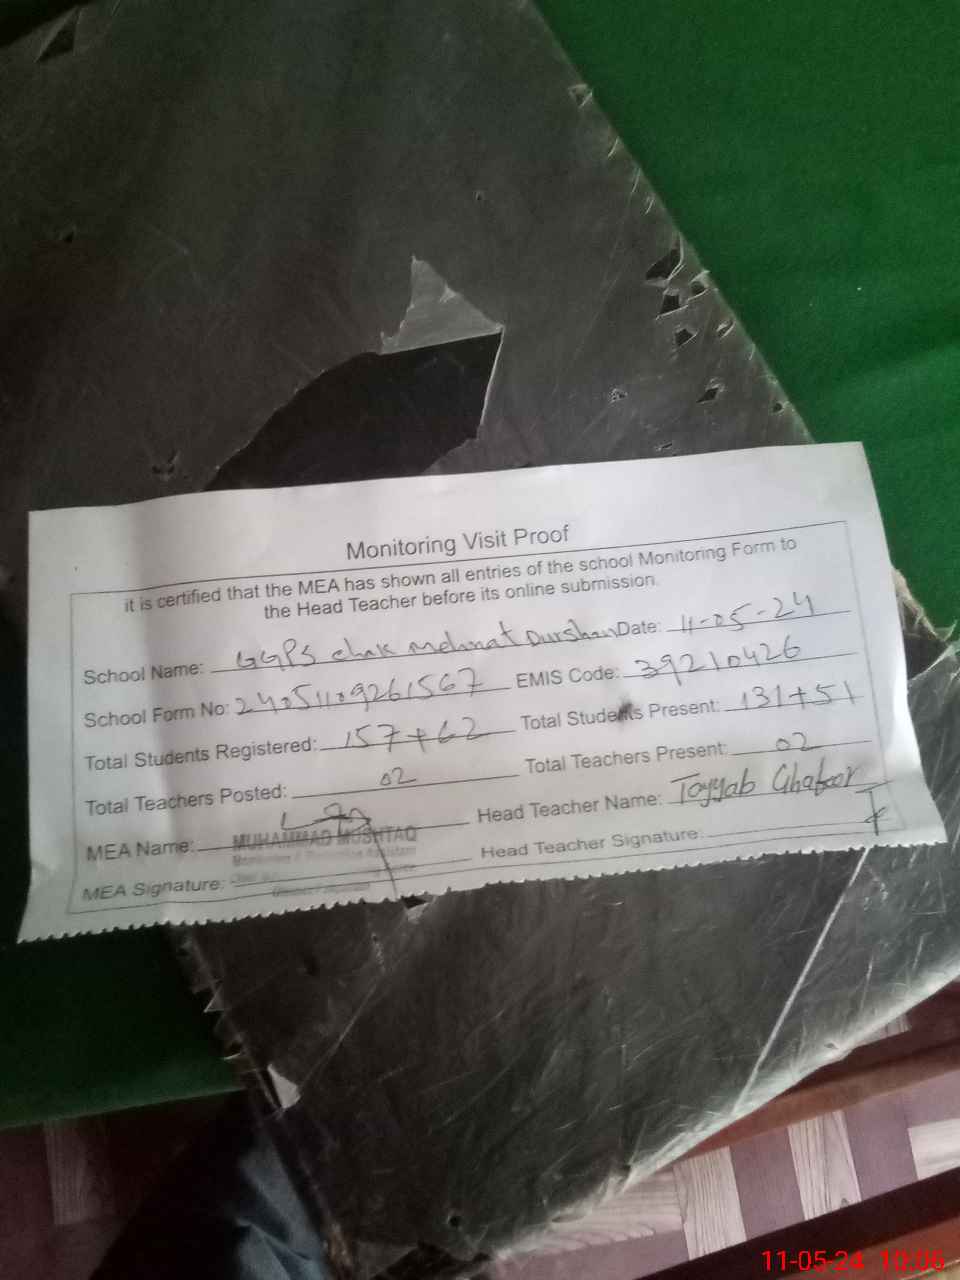 Monitoring Visit Proof
it is certified that the MEA has shown all entries of the school Monitoring Form to
the Head Teacher before its online submission.
School Name: GGPS chak Mehmat Durshan Date: 11-05-24
School Form No: 240511109261567 EMIS Code: 39210426
Total Students Registered: 157+62 Total Students Present: 131+51
Total Teachers Posted: 02 Total Teachers Present: 02
MEA Name: MUHAMMAD MUSHTAQ Head Teacher Name: Tayyab Ghafoor
MEA Signature: Head Teacher Signature:
11-05-24 10:06